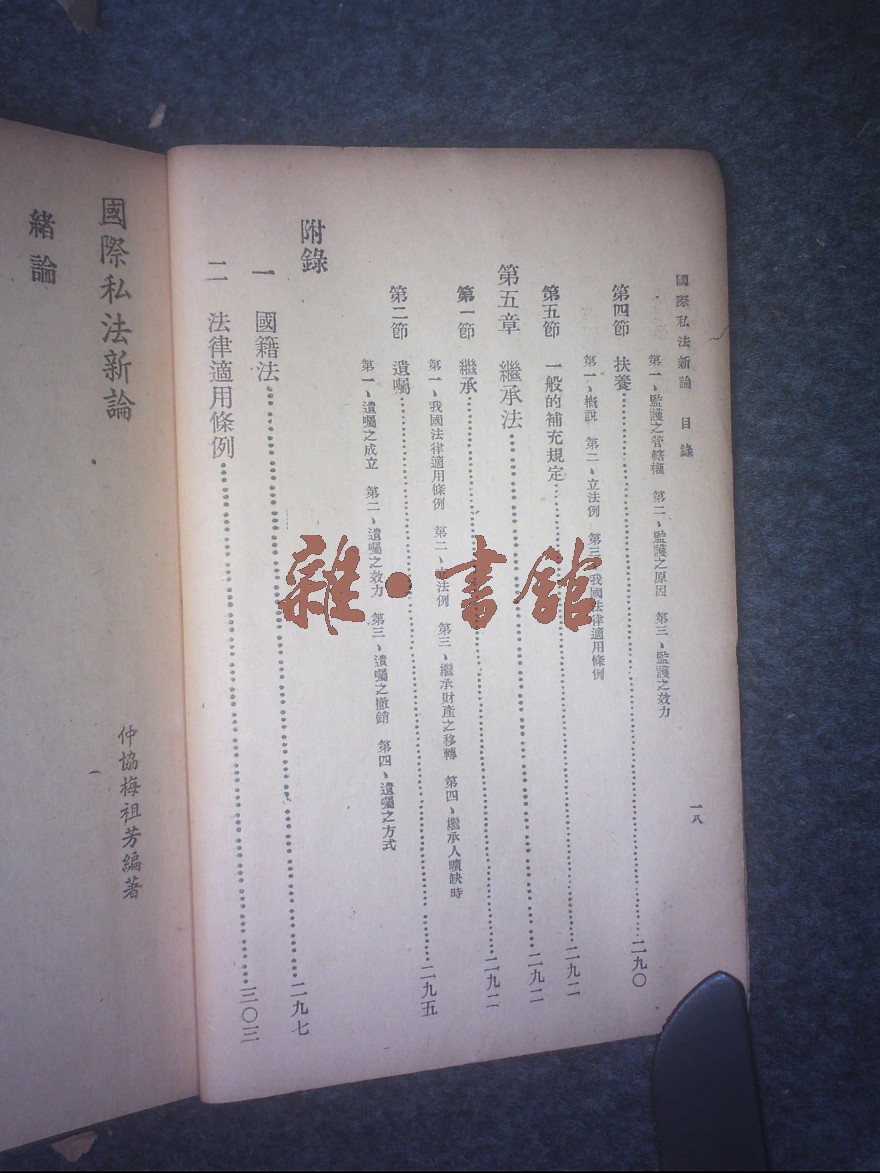 國際私法新論 目錄
一八
第一、監護之管轄權 第二、監護之原因 第三、監護之效力
第四節 扶養……二九〇
第一、概說 第二、立法例 第三、我國法律適用條例
第五節 一般的補充規定……二九二
第五章 繼承法……二九二
第一節 繼承……二九二
第一、我國法律適用條例 第二、立法例 第三、繼承財產之移轉 第四、繼承人曠缺時
第二節 遺囑……二九五
第一、遺囑之成立 第二、遺囑之效力 第三、遺囑之撤銷 第四、遺囑之方式
附錄
一 國籍法……二九七
二 法律適用條例……三〇三
國際私法新論
仲協梅祖芳編著
緒論
雜·書館